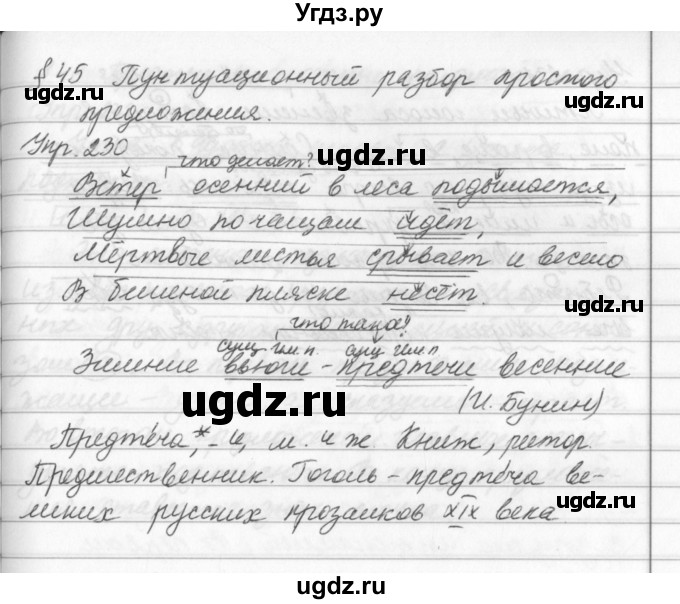 Угдз.ру
§ 45 Пунктуационный разбор простого
предложения.
ugdz.ru
Упр. 230
что делает?
Ветер осенний в леса подымается,
Шумно по чащам идёт,
ugdz.ru
Мёртвые листья срывает и весело
В бешеной пляске несёт.
ugdz.ru
что така?
сущ. им. п. сущ. им. п
Зимние вьюги – предтечи весенние
ugdz.ru
(И. Бунин)
Предте́ча,* -и, м. и ж. Книж, ритор.
Предшественник. Гоголь – предтеча ве-
ugdz.ru
ликих русских прозаиков XIX века
ugdz.ru
ugdz.ru